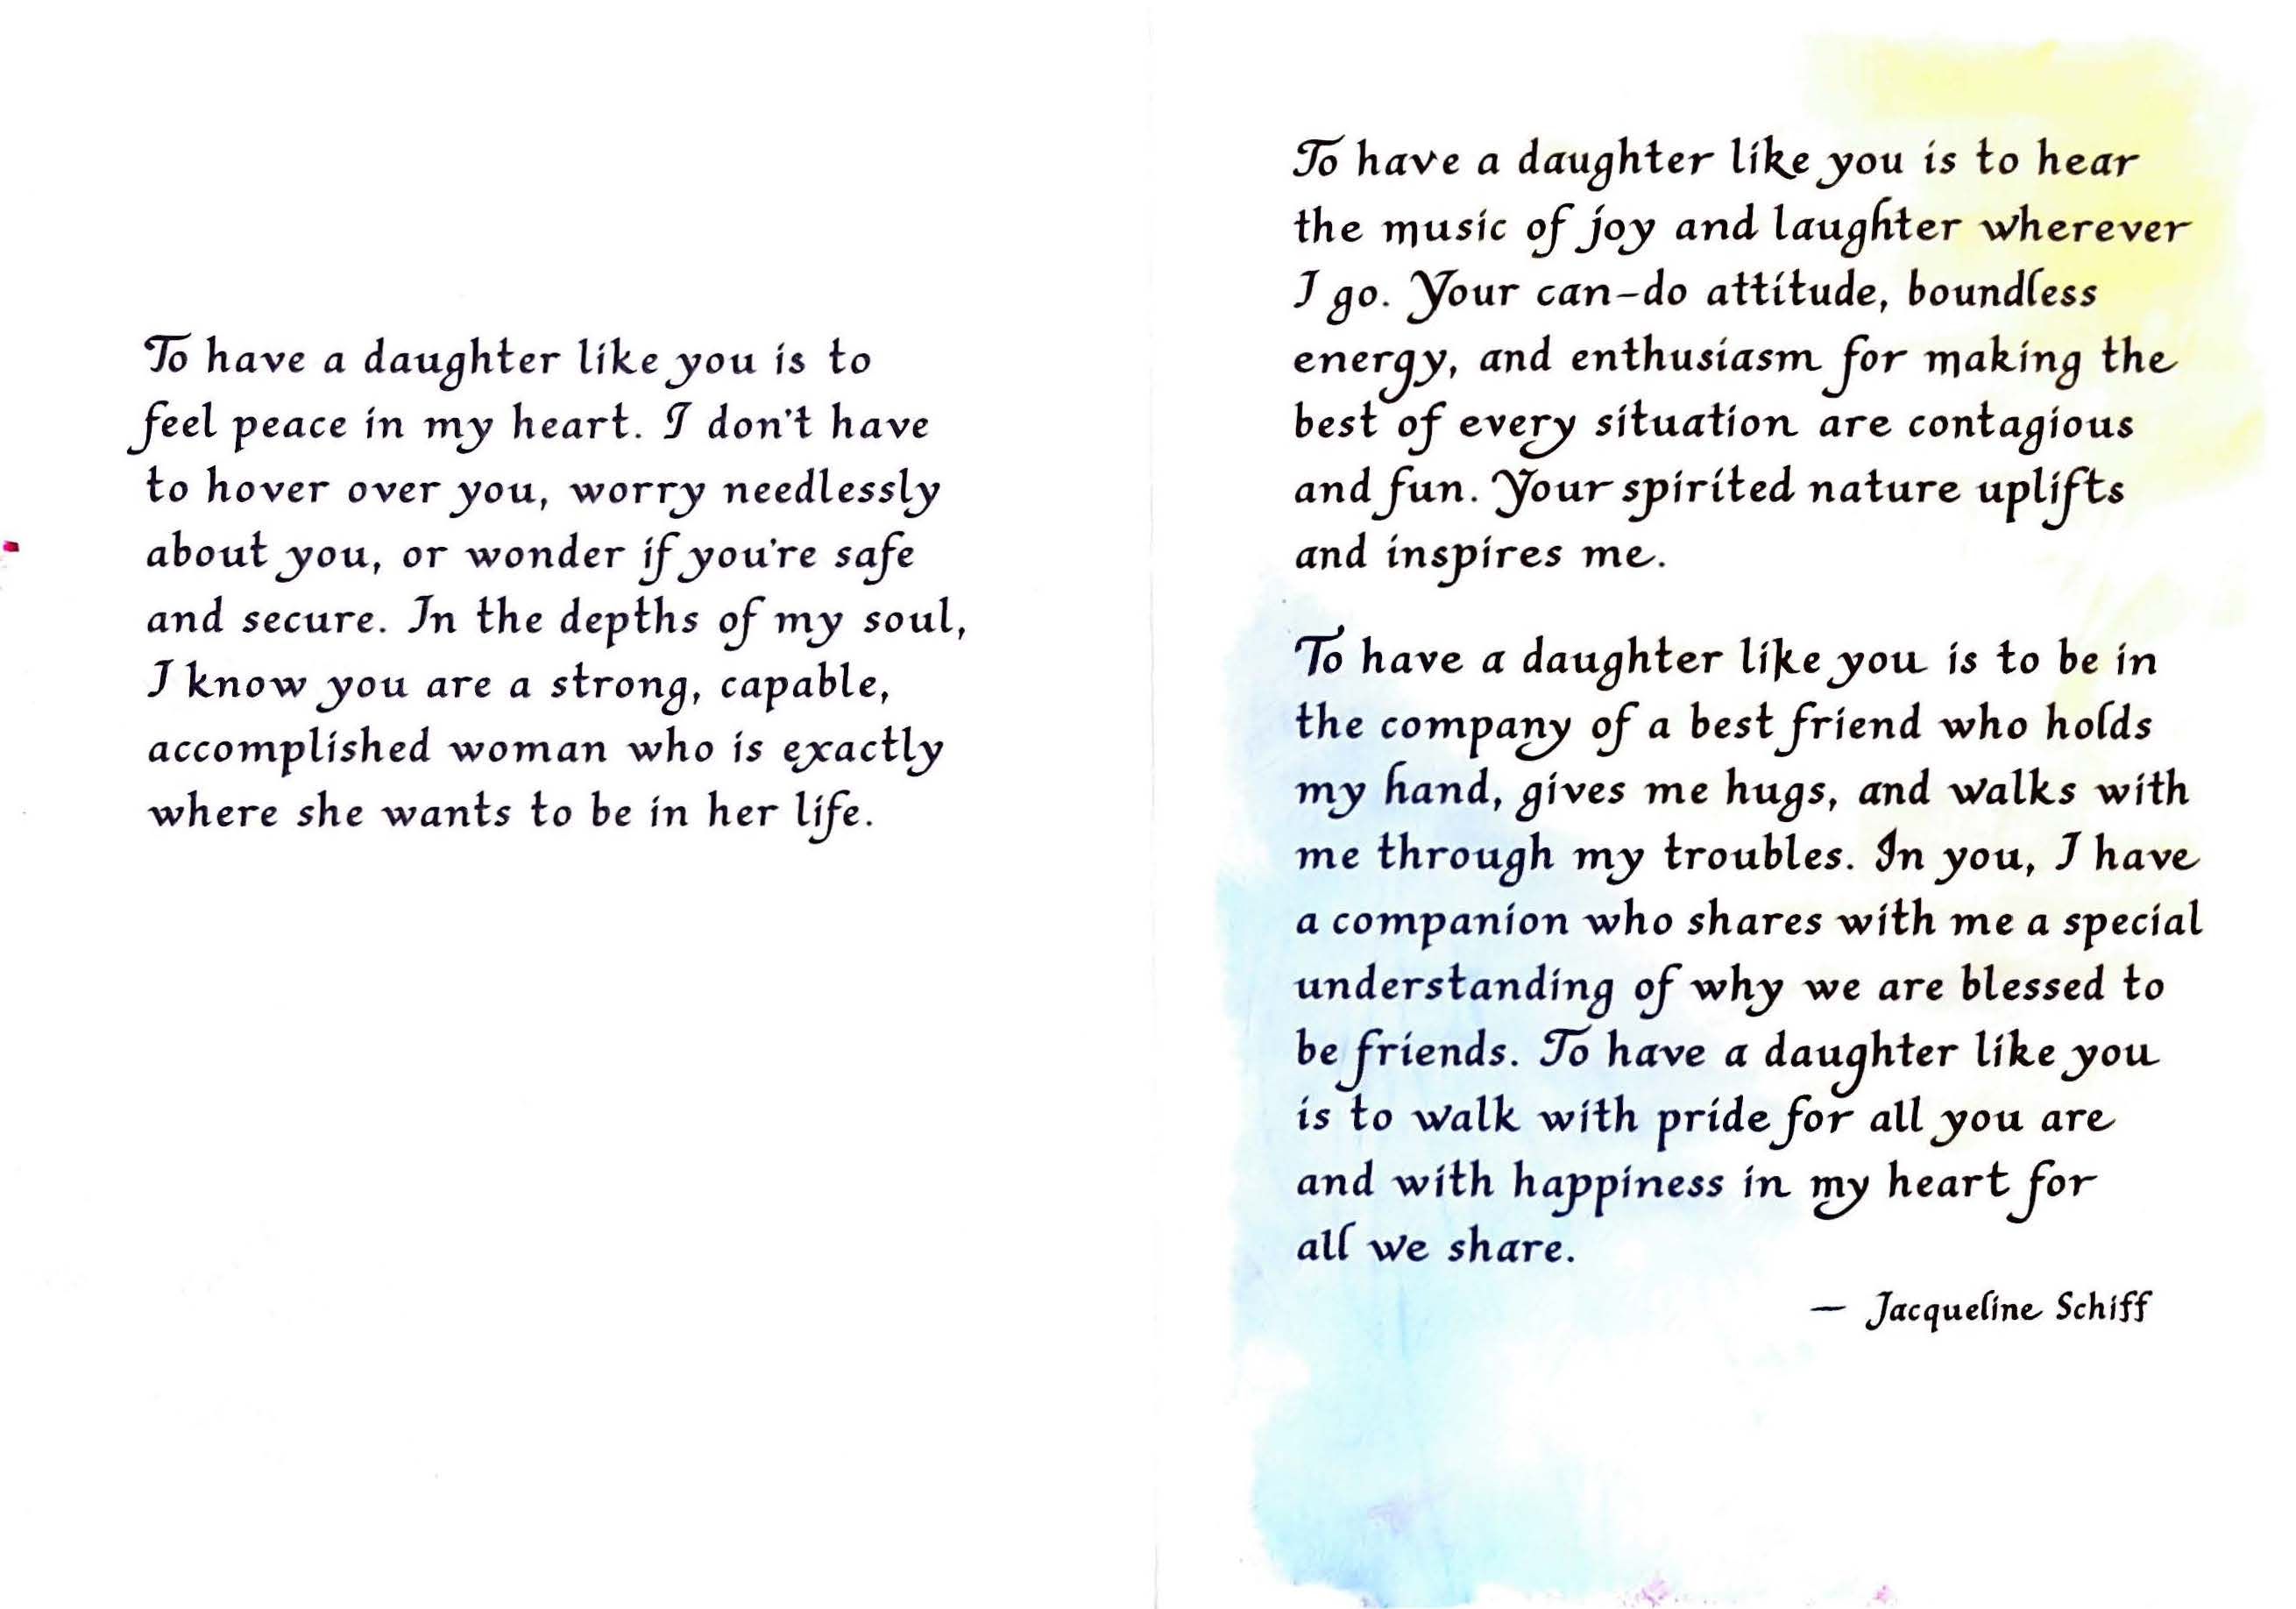 To have a daughter like you is to
feel peace in my heart. I don't have
to hover over you, worry needlessly
about you, or wonder if you're safe
and secure. In the depths of my soul,
I know you are a strong, capable,
accomplished woman who is exactly
where she wants to be in her life.
To have a daughter like you is to hear
the music of joy and laughter wherever
I go. Your can-do attitude, boundless
energy, and enthusiasm for making the
best of every situation are contagious
and fun. Your spirited nature uplifts
and inspires me.
To have a daughter like you is to be in
the company of a best friend who holds
my hand, gives me hugs, and walks with
me through my troubles. In you, I have
a companion who shares with me a special
understanding of why we are blessed to
be friends. To have a daughter like you
is to walk with pride for all you are
and with happiness in my heart for
all we share.
— Jacqueline Schiff